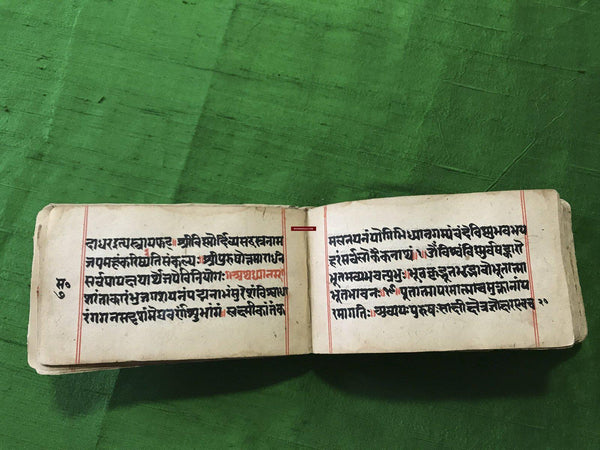 दाधरइत्यस्त्रायफट॥ श्रीविष्णोर्दिव्यसहस्रनाम
जपमहंकरिष्येतिसंकल्प्य॥ श्रीपुरुषोत्तमाराधने
सर्वपापक्षयार्थेजपेविनियोगः॥ अथध्यानम्॥
शांताकारंभुजगशयनंपद्मनाभंसुरेशंविश्वाधा
रंगगनसदृशंमेघवर्णंशुभांगं॥ लक्ष्मीकांतंक
मलनयनंयोगिभिर्ध्यानगम्यंवंदेविष्णुंभवभय
हरंसर्वलोकैकनाथं॥१॥ ॐविश्वंविष्णुर्वषट्कारो
भूतभव्यभवत्प्रभुः॥ भूतकृद्भूतभृद्भावोभूतात्मा
भूतभावनः॥१॥ पूतात्मापरमात्माचमुक्तानांप
रमागतिः॥ अव्ययःपुरुषःसाक्षीक्षेत्रज्ञोक्षरएवच